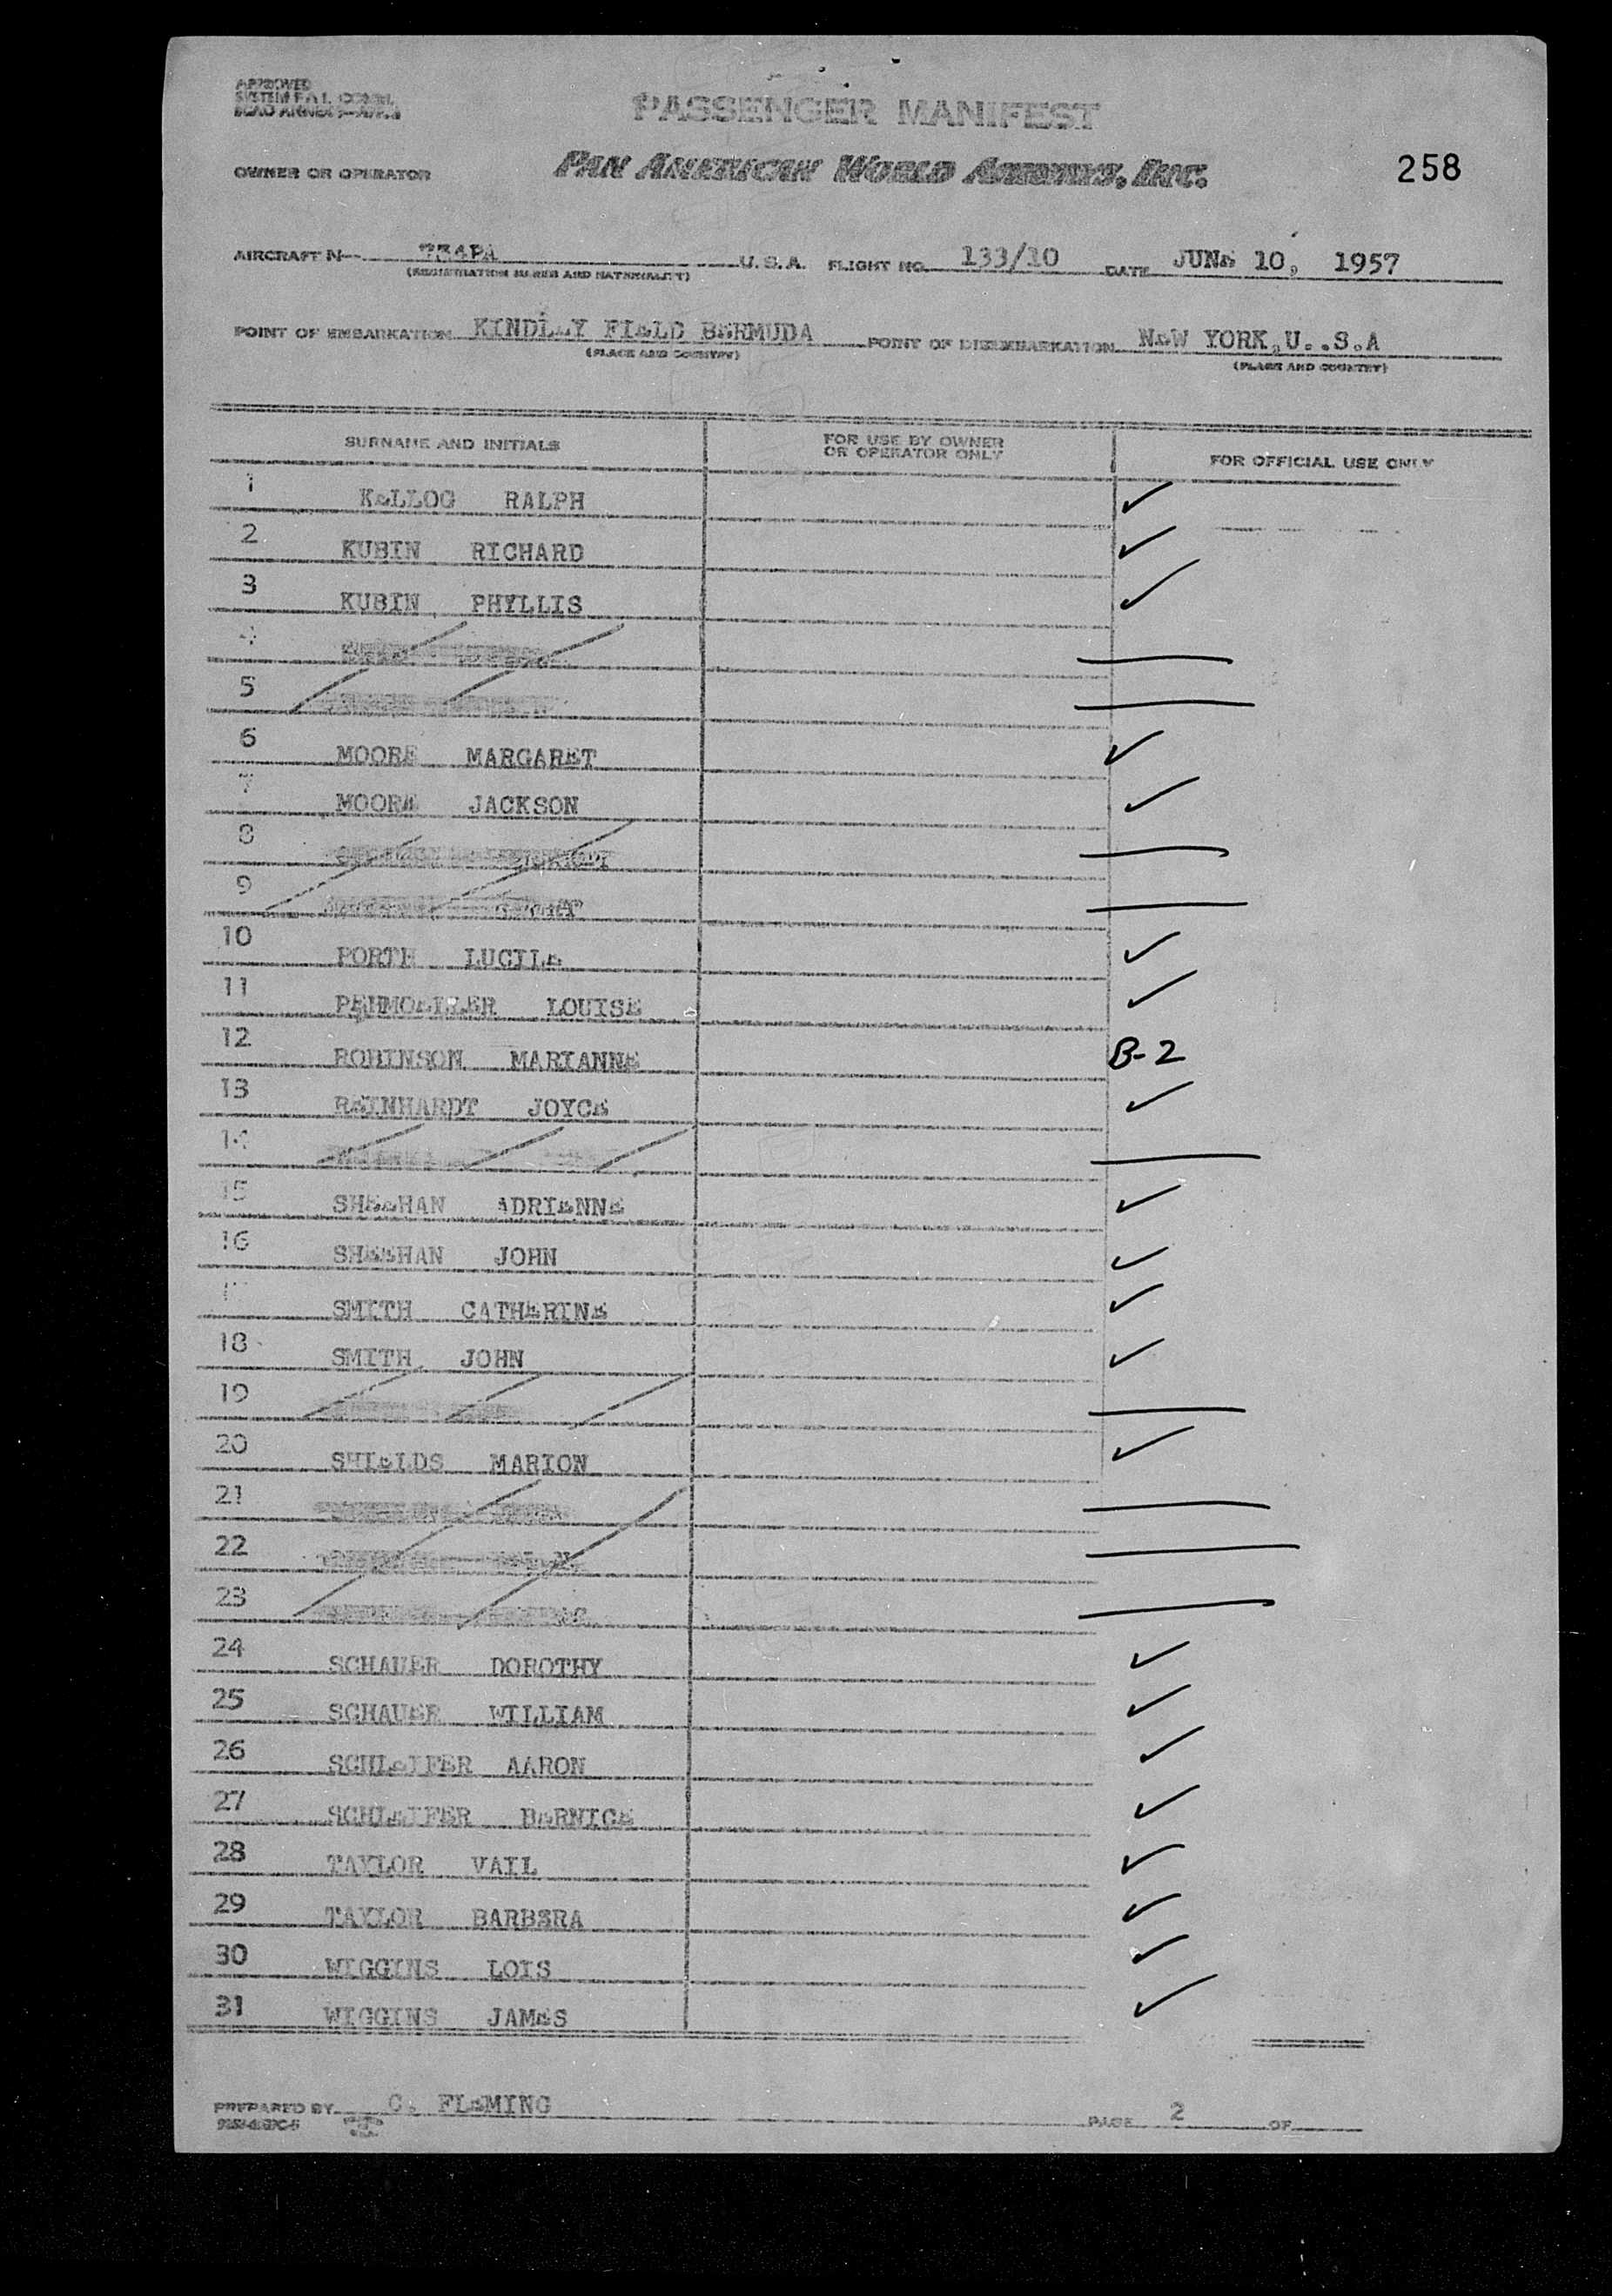 APPROVED
PASSENGER MANIFEST
OWNER OR OPERATOR PAN AMERICAN WORLD AIRWAYS, INC. 258
AIRCRAFT N 734PA U.S.A. FLIGHT NO. 133/10 DATE JUNE 10, 1957
(REGISTRATION MARKS AND NATIONALITY)
POINT OF EMBARKATION KINDLEY FIELD BERMUDA POINT OF DISEMBARKATION NEW YORK,U..S.A
(PLACE AND COUNTRY) (PLACE AND COUNTRY)
SURNAME AND INITIALS FOR USE BY OWNER OR OPERATOR ONLY FOR OFFICIAL USE ONLY
1 KELLOG RALPH ✓
2 KUBIN RICHARD ✓
3 KUBIN PHYLLIS ✓
4
5
6 MOORE MARGARET ✓
7 MOORE JACKSON ✓
8
9
10 PORTH LUCILE ✓
11 LOUISE ✓
12 ROBINSON MARIANNE B-2
13 REINHARDT JOYCE ✓
14
15 SHEEHAN ADRIENNE ✓
16 SHEEHAN JOHN ✓
SMITH CATHERINE ✓
18 SMITH JOHN ✓
19
20 SHIELDS MARION ✓
21
22
23
24 SCHAUER DOROTHY ✓
25 SCHAUER WILLIAM ✓
26 SCHLEIFER AARON ✓
27 SCHLEIFER BERNICE ✓
28 TAYLOR VAIL ✓
29 TAYLOR BARBERA ✓
30 WIGGINS LOIS ✓
31 WIGGINS JAMES ✓
PREPARED BY C. FLEMING PAGE 2 OF